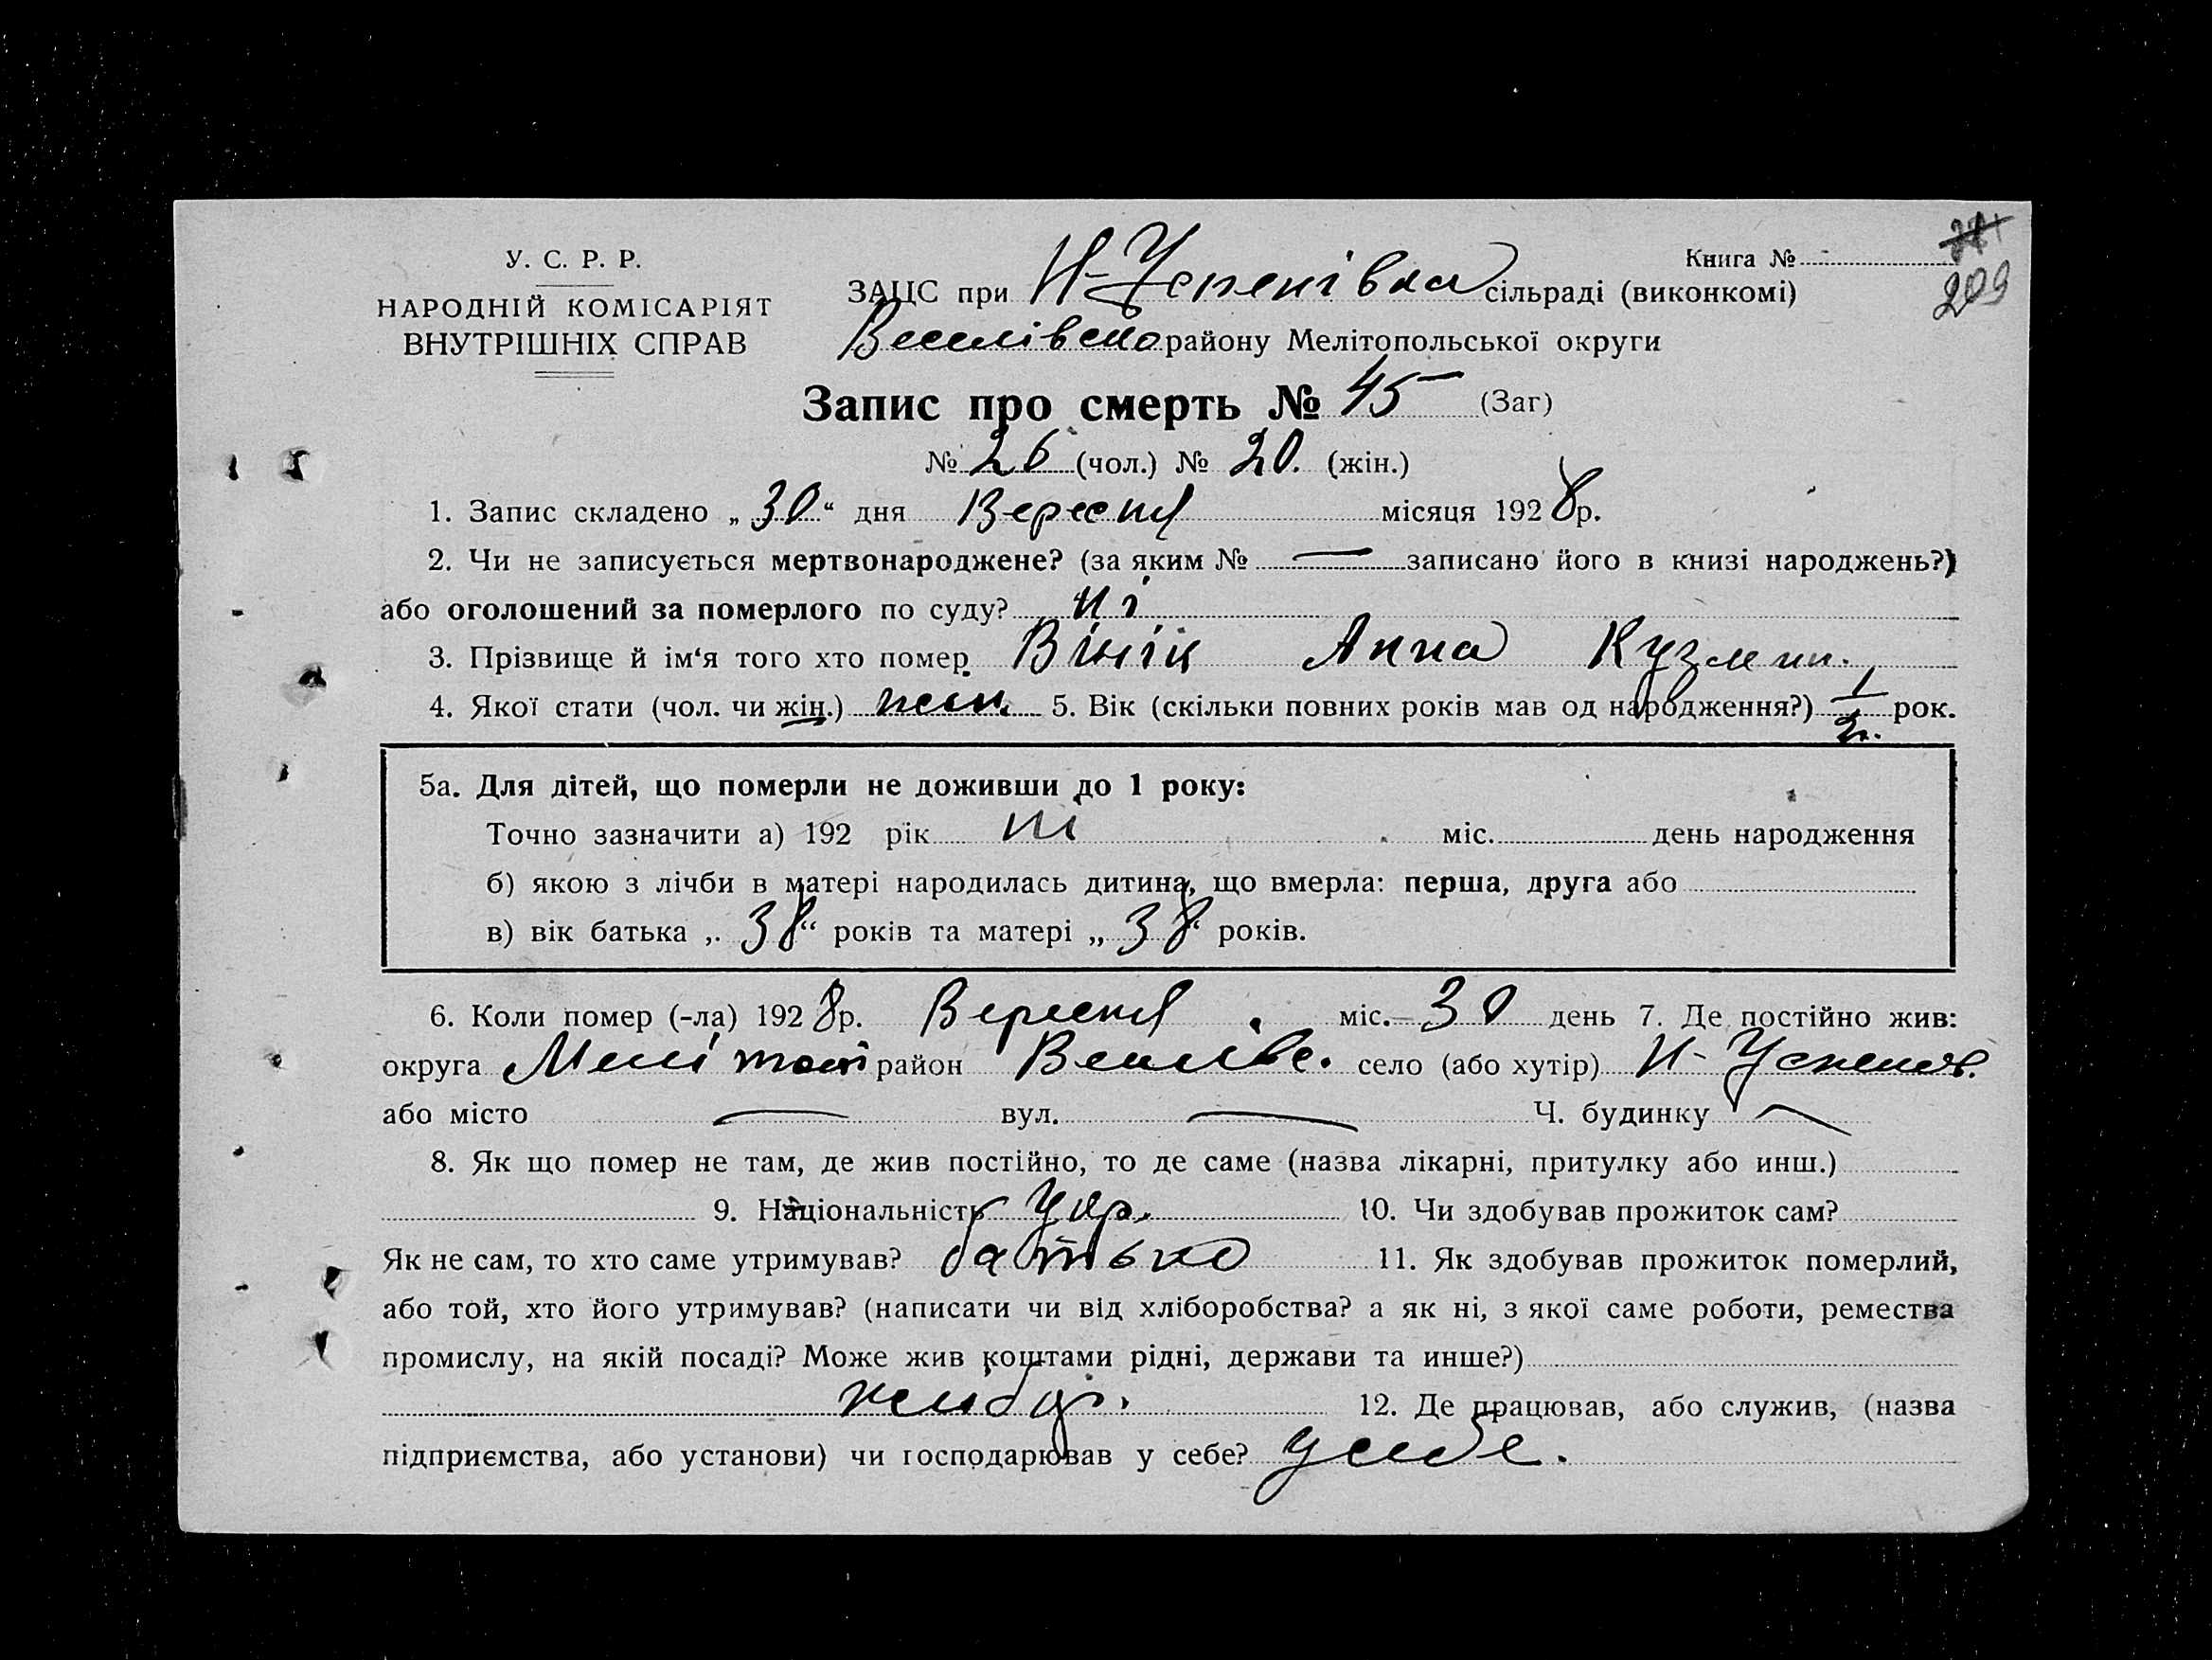 У. С. Р. Р.
НАРОДНІЙ КОМІСАРІЯТ
ВНУТРІШНІХ СПРАВ
Книга №
209
ЗАЦС при Н-Успенівка сільраді (виконкомі)
Веселівсько району Мелітопольської округи
Запис про смерть № 45 (Заг)
№ 26 (чол.) № 20. (жін.)
1. Запис складено „30“ дня Вересня місяця 1928р.
2. Чи не записується мертвонароджене? (за яким № — записано його в книзі народжень?)
або оголошений за померлого по суду? ні
3. Прізвище й ім‘я того хто помер Вініц Анна Кузмин.
4. Якої стати (чол. чи жін.) жін. 5. Вік (скільки повних років мав од народження?) 1/2 рок.
5а. Для дітей, що померли не доживши до 1 року:
Точно зазначити а) 192 рік міс. день народження
б) якою з лічби в матері народилась дитина, що вмерла: перша, друга або
в) вік батька „38“ років та матері „38“ років.
6. Коли помер (-ла) 1928р. Вересня міс. 30 день 7. Де постійно жив:
округа Мелітоп район Веселівс. село (або хутір) Н-Успенів.
або місто — вул. — Ч. будинку —
8. Як що помер не там, де жив постійно, то де саме (назва лікарні, притулку або инш.)
9. Національність Укр. 10. Чи здобував прожиток сам?
Як не сам, то хто саме утримував? батько 11. Як здобував прожиток померлий,
або той, хто його утримував? (написати чи від хліборобства? а як ні, з якої саме роботи, ремества
промислу, на якій посаді? Може жив коштами рідні, держави та инше?)
12. Де працював, або служив, (назва
підприємства, або установи) чи господарював у себе? у себе.